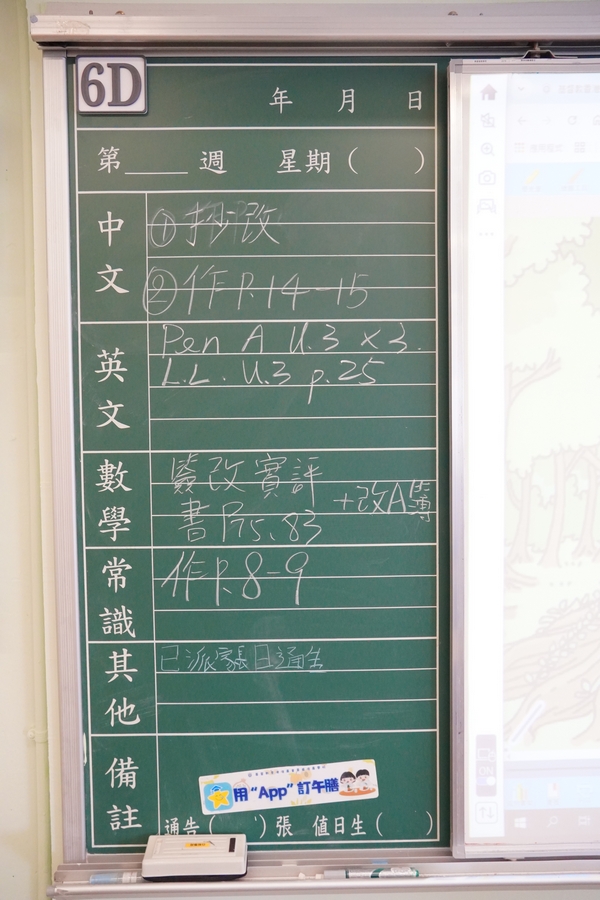 6D
年 月 日
第____週 星期（ ）
中文
①抄改
②作P.14-15
英文
Pen A U.3 x3.
L.L. U.3 p.25
數學
簽改實評
+改A簿
書P75、83
常識
作P.8-9
其他
已派家長日通
備註
用“App”訂午膳
通告（ ）張 值日生（ ）